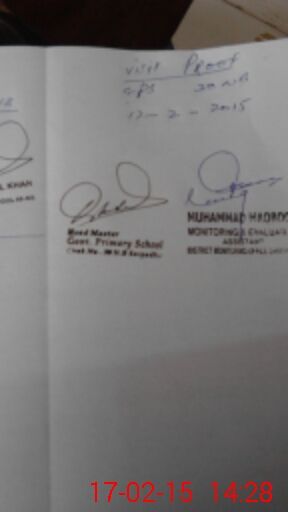 visit Proof
GPS 20 NB
17-2-2015
L KHAN
Head Master
Govt. Primary School
MUHAMMAD
MONITORING & EVALUATI
ASSISTANT
DISTRICT MONITORING OFFICE
17-02-15 14:28